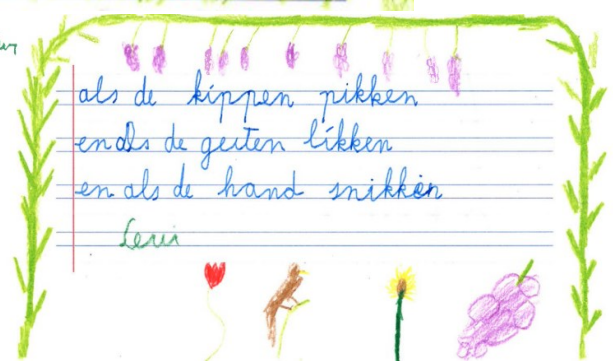 als de kippen pikken
en als de geiten likken
en als de hand snikken